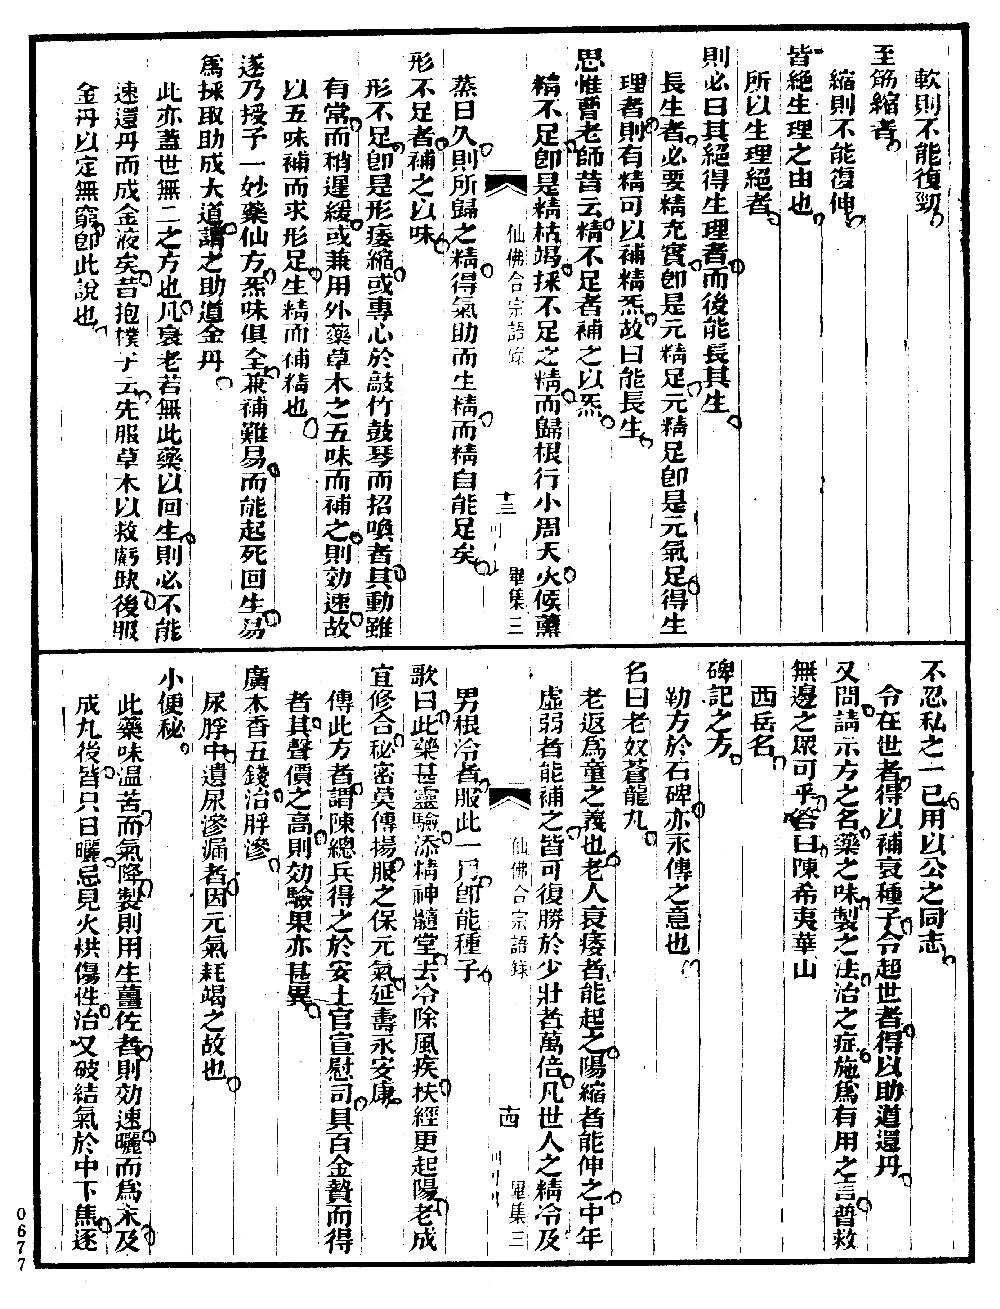 軟則不能復勁
至筋縮者
縮則不能復伸
皆絕生理之由也
所以生理絕者
則必曰其絕得生理者而後能長其生
長生者必要精充實卽是元精足元精足卽是元氣足得生
理者則有精可以補精炁故曰能長生
思惟曹老師昔云精不足者補之以炁
精不足卽是精枯竭採不足之精而歸根行小周天火候薰
仙佛合宗語錄
十三
畢集三
蒸日久則所歸之精得氣助而生精而精自能足矣
形不足者補之以味
形不足卽是形痿縮或專心於敲竹鼓琴而招喚者其動雖
有常而稍遲緩或兼用外藥草木之五味而補之則効速故
以五味補而求形足生精而補精也
遂乃授予一妙藥仙方炁味俱全兼補難易而能起死回生易
爲採取助成大道謂之助道金丹
此亦蓋世無二之方也凡衰老若無此藥以回生則必不能
速還丹而成金液矣昔抱樸子云先服草木以救虧缺後服
金丹以定無窮卽此說也
不忍私之一己用以公之同志
令在世者得以補衰種子令超世者得以助道還丹
又問請示方之名藥之味製之法治之症施爲有用之言普救
無邊之眾可乎答曰陳希夷華山
西岳名
碑記之方
勒方於石碑亦永傳之意也
名曰老奴蒼龍丸
老返爲童之義也老人衰痿者能起之陽縮者能伸之中年
虛弱者能補之皆可復勝於少壯者萬倍凡世人之精冷及
仙佛合宗語錄
十四
畢集三
男根冷者服此一月卽能種子
歌曰此藥甚靈驗添精神髓堂去冷除風疾扶經更起陽老成
宜修合秘密莫傳揚服之保元氣延壽永安康
傳此方者謂陳總兵得之於安土官宣慰司具百金贄而得
者其聲價之高則効驗果亦甚異
廣木香五錢治脬滲
尿脬中遺尿滲漏者因元氣耗竭之故也
小便秘
此藥味温苦而氣降製則用生薑佐者則効速曬而爲末及
成丸後皆只日曬忌見火烘傷性治又破結氣於中下焦逐
0677